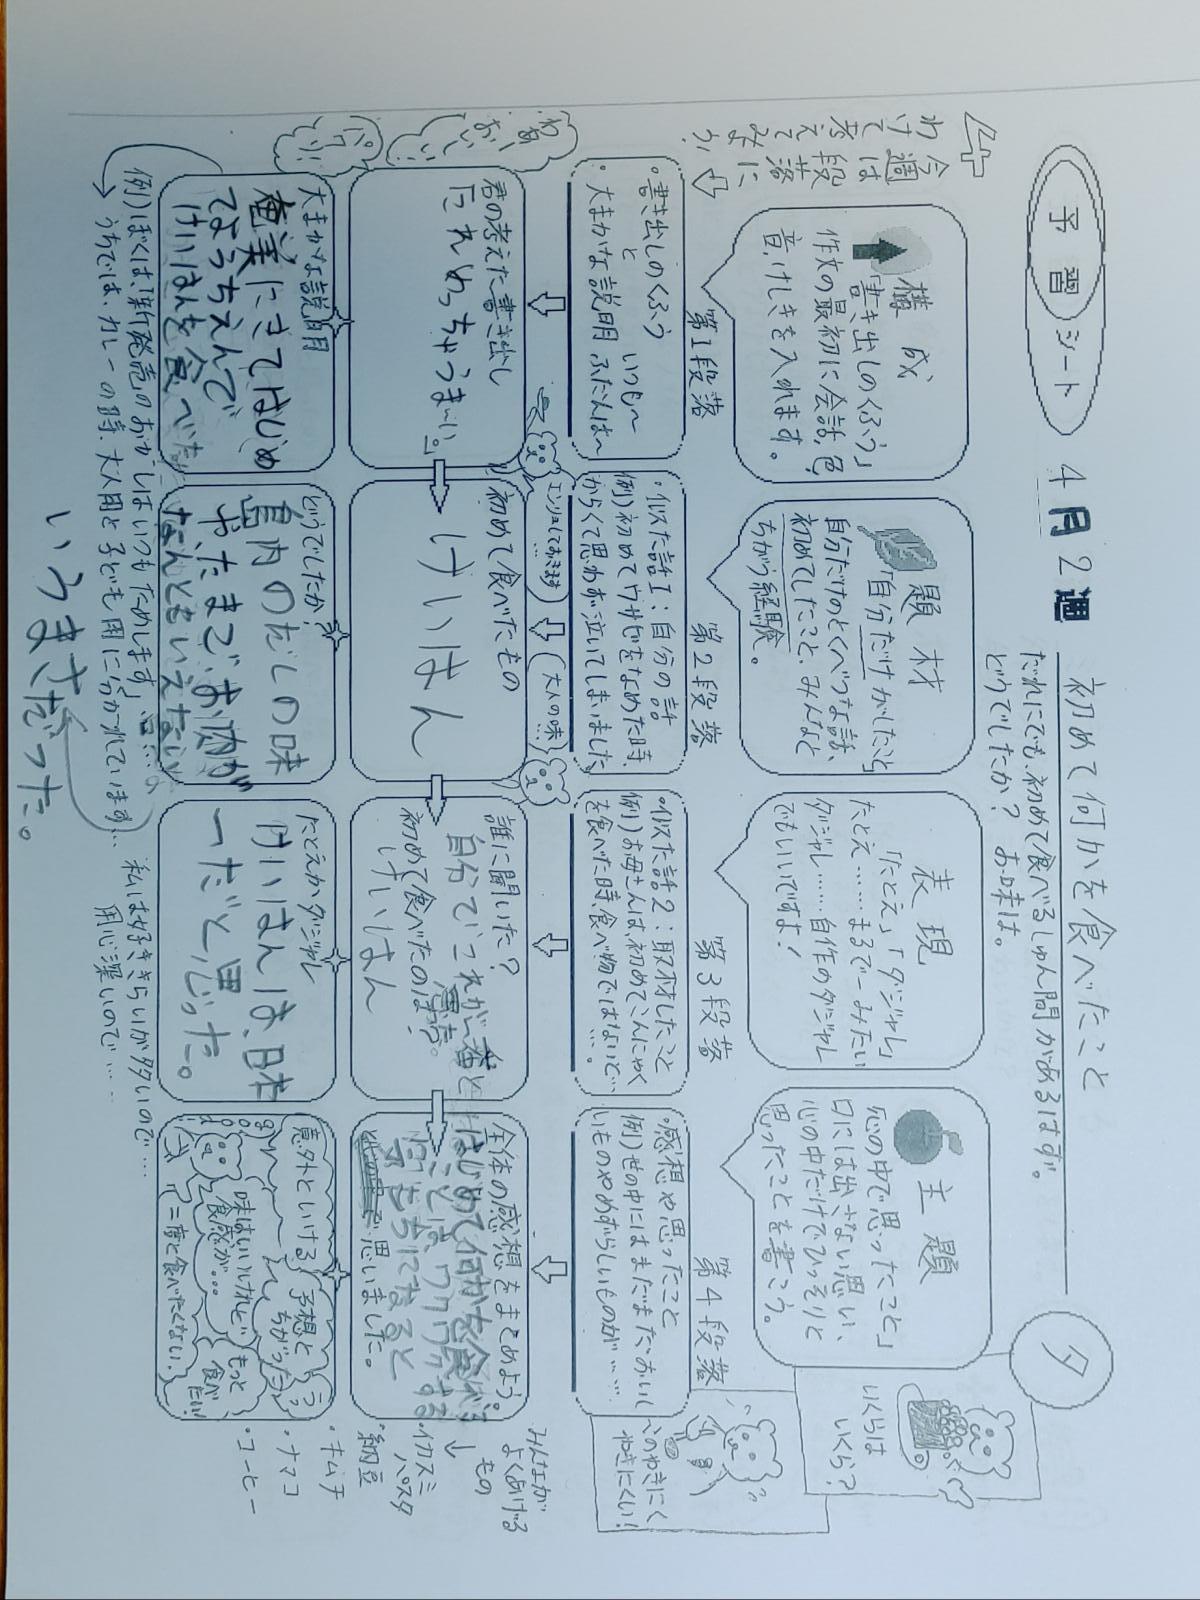 予習シート
4月2週
初めて何かを食べたこと
だれにでも、初めて食べるしゅん間があるはず。
どうでしたか? お味は。
タ
今週は段落に
わけて考えてみよう!
構成
「書き出しのくふう」
作文の最初に会話、色、
音、けしきを入れます。
題材
「自分だけがしたこと」
自分だけのとくべつな話、
初めてしたこと、みんなと
ちがう経験。
表現
「たとえ」「ダジャレ」
たとえ……まるで〜みたい
ダジャレ……自作のダジャレ
でもいいですよ!
主題
「心の中で思ったこと」
口には出さない思い、
心の中だけでひっそりと
思ったことを書こう。
いくらは
いくら?
第1段落
・書き出しのくふう
と
・大まかな説明
いつも〜
ふだんは〜
第2段落
・似た話1:自分の話
例)初めてワサビをなめた時、
からくて思わず泣いてしまいました
第3段落
・似た話2:取材したこと
例)お母さんは初めてこんにゃく
を食べた時、食べ物ではないで…
…。
第4段落
・感想や思ったこと
例)世の中にはまだまだ、おいし
いものやめずらしいものが……
このやきにく
やきにくい!
君の考えた書き出し
「これめっちゃうまーい。」
エンリョしておきます
…
大人の味…
初めて食べたもの
けいはん
誰に聞いた?
自分でこれが一番と
初めて食べたのは?
けいはん
全体の感想をまとめよう。
はじめて何かを食べる
ことは、ワクワクする
気もちになると
思いました。
みんなが
よくあげる
もの
・イカスミ
パスタ
・納豆
・キムチ
・ナマコ
・コーヒー
大まかな説明
奄美にきてはじめ
てなっちえんで
けいはんを食べた
どうでしたか?
島内のだしの味
や、たまご、お肉が
なんともいえない
いうまさだった。
たとえかダジャレ
けいはんは、日本
一だと思った。
意外といける
予想と
ちがった
う〜ん
味はいいけれど
食感が…
もっと
食べ
たい!
二度と食べたくない!
例)ぼくは「新発売」のおかしはいつもためします!
うちでは、カレーの時、大人用と子ども用に分かれています…
私は好ききらいが多いので…
用心深いので……